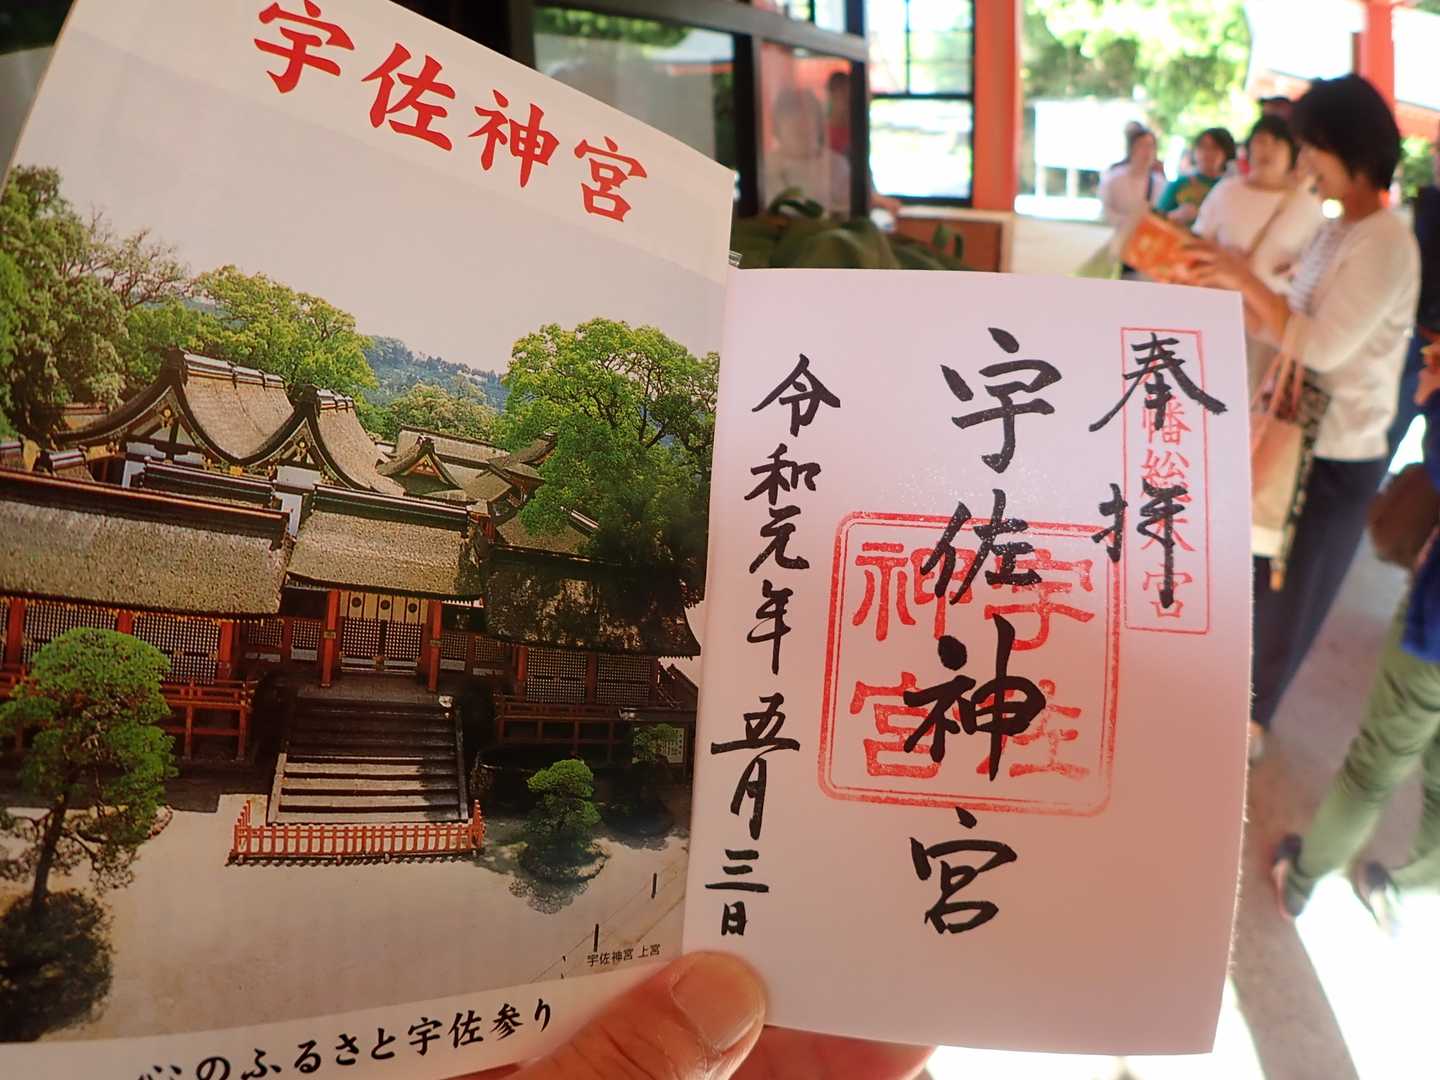 宇佐神宮
宇佐神宮 上宮
心のふるさと宇佐参り
奉拝
幡総本宮
宇佐神宮
宇佐
神宮
令和元年 五月三日